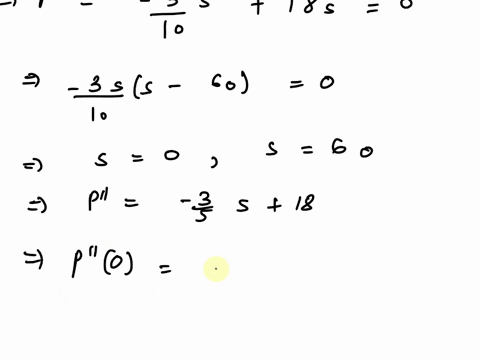 = -3/10 s + 18s = 0
⇒ -3s/10 (s - 60) = 0
⇒ s = 0 , s = 60
⇒ p'' = -3/5 s + 18
⇒ p''(0) =